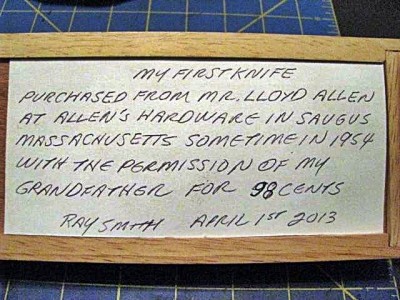 MY FIRST KNIFE
PURCHASED FROM MR. LLOYD ALLEN
AT ALLEN'S HARDWARE IN SAUGUS
MASSACHUSETTS SOMETIME IN 1954
WITH THE PERMISSION OF MY
GRANDFATHER FOR 98 CENTS
RAY SMITH APRIL 1ST 2013